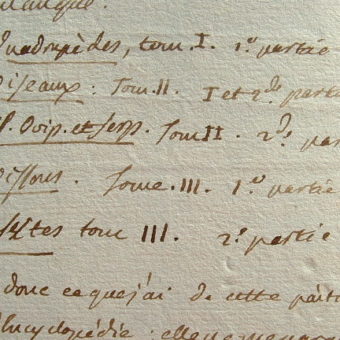 Quadrupèdes, tom. I. 1.e partie
Oiseaux. Tom. II. I et 2.de partie
Q. Ovip. et Serp. Tom II. 2.de par
Poissons. Tome. III. 1.e partie
tes tom III. 2.e partie
donc ce que j'ai de cette parti
Encyclopédie